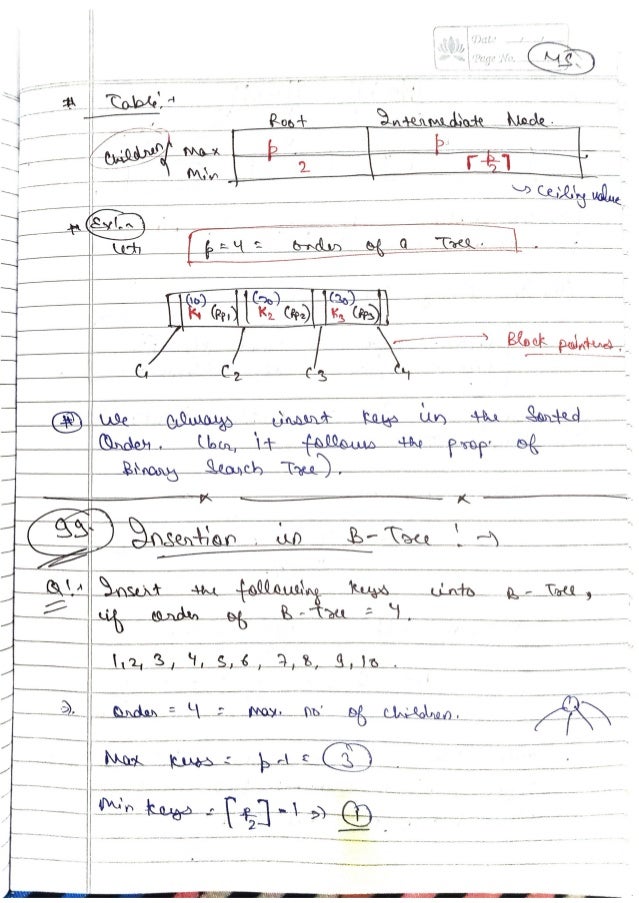 Date
Page No.
MS.
# Table:→
Root Intermediate Node.
Children { Max p p
Min 2 ⌈p/2⌉
↳ Ceiling value
# Expln
Let, p = 4 = order of a Tree.
(10) (20) (30)
K1 (RP1) K2 (RP2) K3 (RP3)
→ Block pointers.
C1 C2 C3 C4
# We always insert keys in the Sorted
Order. (bcz, it follows the prop. of
Binary Search Tree).
99. Insertion in B-Tree :→
Q1.→ Insert the following keys into B-Tree,
if order of B-tree = 4.
1, 2, 3, 4, 5, 6, 7, 8, 9, 10.
⇒. Order = 4 = max. no. of children.
Max keys = p-1 = 3
Min keys = ⌈p/2⌉-1 ⇒ 1